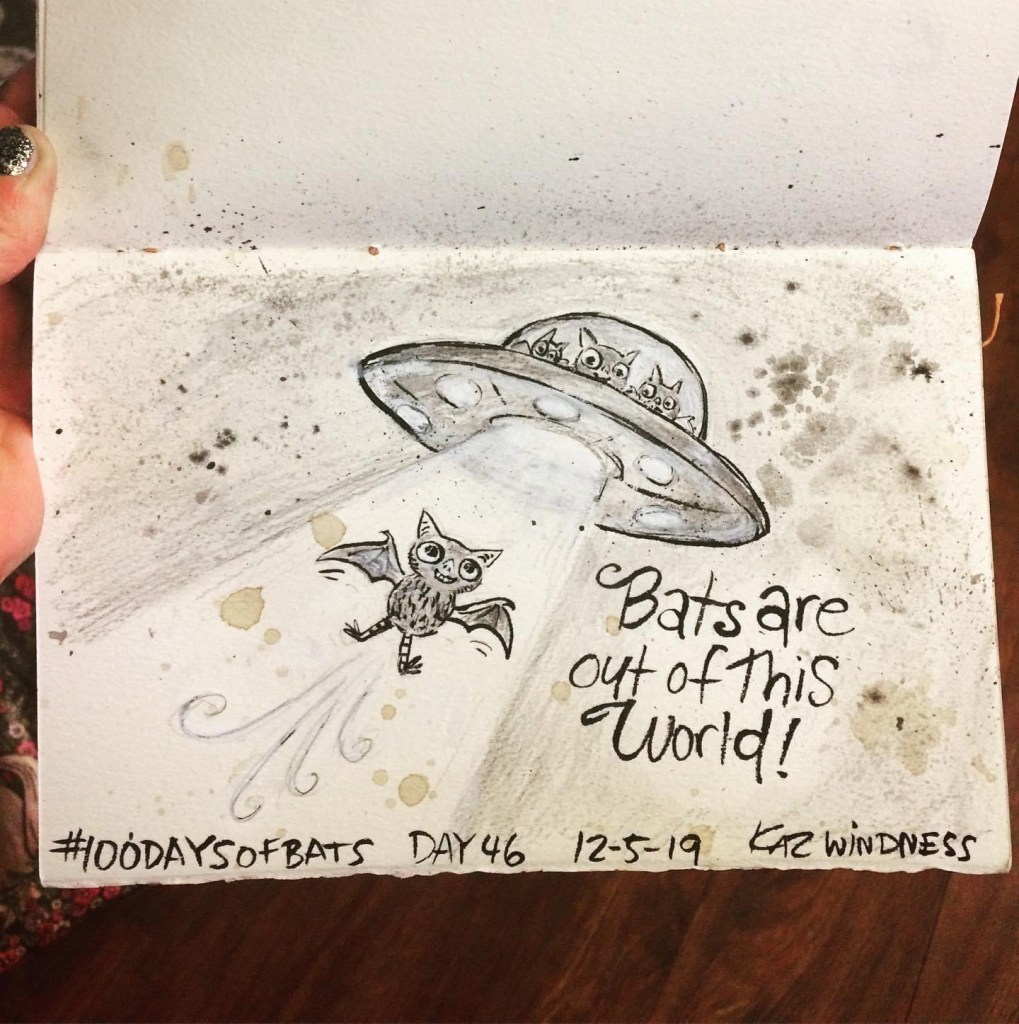 Bats are
out of this
World!
#100DAYSOFBATS DAY 46 12-5-19 KAZ WINDNESS